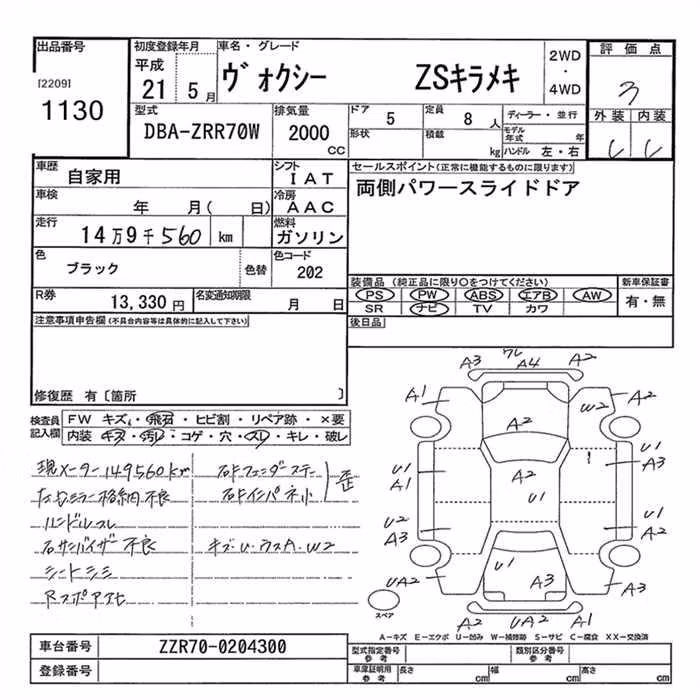 出品番号
[2209]
1130
初度登録年月
平成
21年 5月
車名・グレード
ヴォクシー ZSキラメキ
2WD
・
4WD
評価点
3
外装 内装
型式
DBA-ZRR70W
排気量
2000
CC
ドア 5
形状
定員 8 人
積載 kg
ディーラー・並行
モデル年式 年
ハンドル 左・右
車歴
自家用
シフト
IAT
車検
年 月( 日)
冷房
AAC
走行
14万9千560 km
燃料
ガソリン
色
ブラック
色替
色コード
202
R券
13,330円
名変通知期限
月 日
セールスポイント(正常に機能するものに限ります)
両側パワースライドドア
装備品 (純正品に限り○をつけてください)
PS PW ABS エアB AW
SR ナビ TV カワ
新車保証書
有・無
後日品
注意事項申告欄(不具合内容等は具体的に記入して下さい)
修復歴 有〔箇所 〕
検査員
記入欄
FW キズ・飛石・ヒビ割・リペア跡・×要
内装 キズ・汚レ・コゲ・穴・スレ・キレ・破レ
現メーター149560km
左右ミラー格納不良
ハンドルスレ
右サンバイザー不良
シートシミ
右Fフェンダーステー
右Fインパネ小
歪
キズ・U・ウスA・W2
A3 ワレ A4 A2
A1 A2
W2
A2
U1 A1
A2
U1
U1 A3
U2 A3
U1 A2
U1
A3
UA2
A3
A2 UA2 A1
スペア
A-キズ E-エクボ U-凹み W-補修跡 S-サビ C-腐食 XX-交換済
車台番号
ZZR70-0204300
登録番号
型式指定番号
参考
類別区分番号
参考
車庫証明用
参考
長さ cm 幅 cm 高さ cm